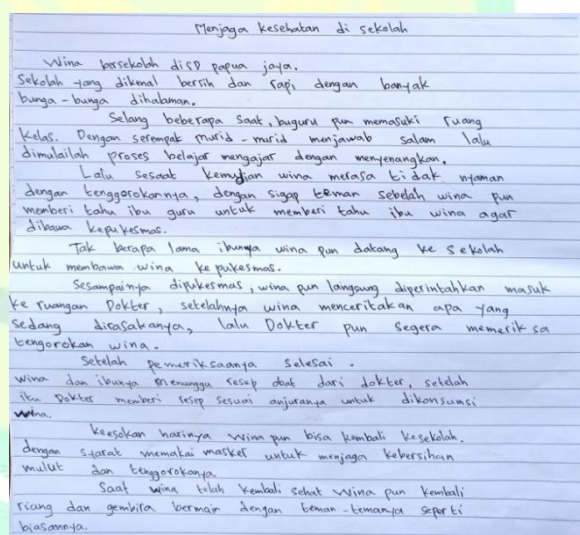 Menjaga kesehatan di sekolah
Wina bersekolah diSD papua jaya.
Sekolah yang dikenal bersih dan rapi dengan banyak
bunga-bunga dihalaman.
Selang beberapa saat, buguru pun memasuki ruang
kelas. Dengan serempak murid-murid menjawab salam lalu
dimulailah proses belajar mengajar dengan menyenangkan.
Lalu sesaat kemudian wina merasa tidak nyaman
dengan tenggorokannya, dengan sigap teman sebelah wina pun
memberi tahu ibu guru untuk memberi tahu ibu wina agar
dibawa kepukesmas.
Tak berapa lama ibunya wina pun datang ke sekolah
untuk membawa wina ke pukesmas.
Sesampainya dipukesmas, wina pun langsung diperintahkan masuk
ke ruangan Dokter, setelahnya wina menceritakan apa yang
sedang dirasakanya, lalu Dokter pun segera memeriksa
tengorokan wina.
Setelah pemeriksaanya selesai.
wina dan ibunya menunggu resep obat dari dokter, setelah
itu Dokter memberi resep sesuai anjuranya untuk dikonsumsi
wina.
keesokan harinya wina pun bisa kembali kesekolah.
dengan syarat memakai masker untuk menjaga kebersihan
mulut dan tenggorokanya.
Saat wina telah kembali sehat wina pun kembali
riang dan gembira bermain dengan teman-temanya seperti
biasannya.